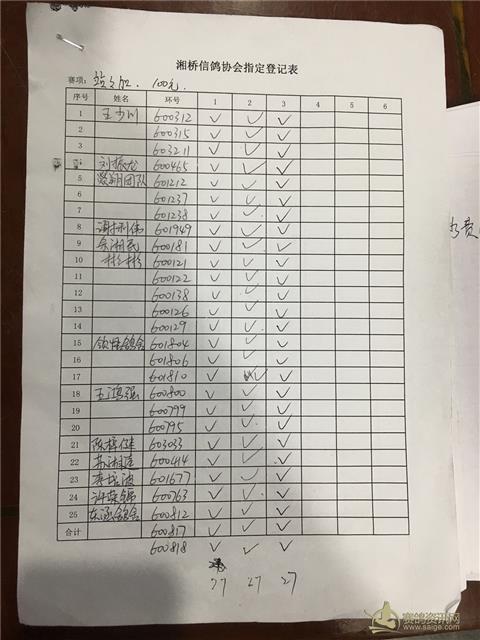 湘桥信鸽协会指定登记表
赛项: 100元
序号 姓名 环号 1 2 3 4 5 6
1 王少川 600312 ✓ ✓ ✓
2 600315 ✓ ✓ ✓
3 603211 ✓ ✓ ✓
刘振龙 600465 ✓ ✓ ✓
5 团队 601212 ✓ ✓ ✓
6 601237 ✓ ✓ ✓
7 601238 ✓ ✓ ✓
8 伟 601949 ✓ ✓ ✓
9 余湘民 600181 ✓ ✓ ✓
10 彬彬 600121 ✓ ✓ ✓
11 600122 ✓ ✓ ✓
12 600138 ✓ ✓ ✓
13 600126 ✓ ✓ ✓
14 600129 ✓ ✓ ✓
15 鸽舍 601804 ✓ ✓ ✓
16 601806 ✓ ✓ ✓
17 601810 ✓ ✓ ✓
18 王鸿强 600800 ✓ ✓ ✓
19 600799 ✓ ✓ ✓
20 600795 ✓ ✓ ✓
21 陈梓健 603033 ✓ ✓ ✓
22 苏湘 600414 ✓ ✓ ✓
23 李培 601677 ✓ ✓ ✓
24 许荣 600763 ✓ ✓ ✓
25 东涵鸽舍 600812 ✓ ✓ ✓
合计 600817 ✓ ✓ ✓
600818 ✓ ✓ ✓
27 27 27
费
赛鸽资讯网
www.saige.com